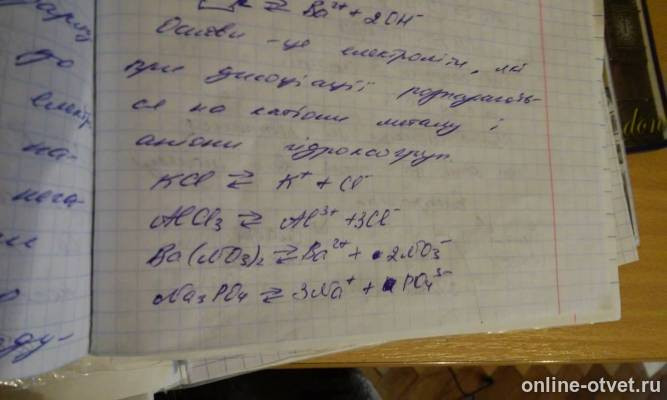 ⇄ Ba²⁺ + 2OH⁻
Основи - це електроліти, які
при дисоціації розпадають-
ся на катіони металу і
аніони гідроксогруп
KCl ⇄ K⁺ + Cl⁻
AlCl₃ ⇄ Al³⁺ + 3Cl⁻
Ba(NO₃)₂ ⇄ Ba²⁺ + 2NO₃⁻
Na₃PO₄ ⇄ 3Na⁺ + PO₄³⁻
до
елект
на-
нега-
ду-
don
online-otvet.ru